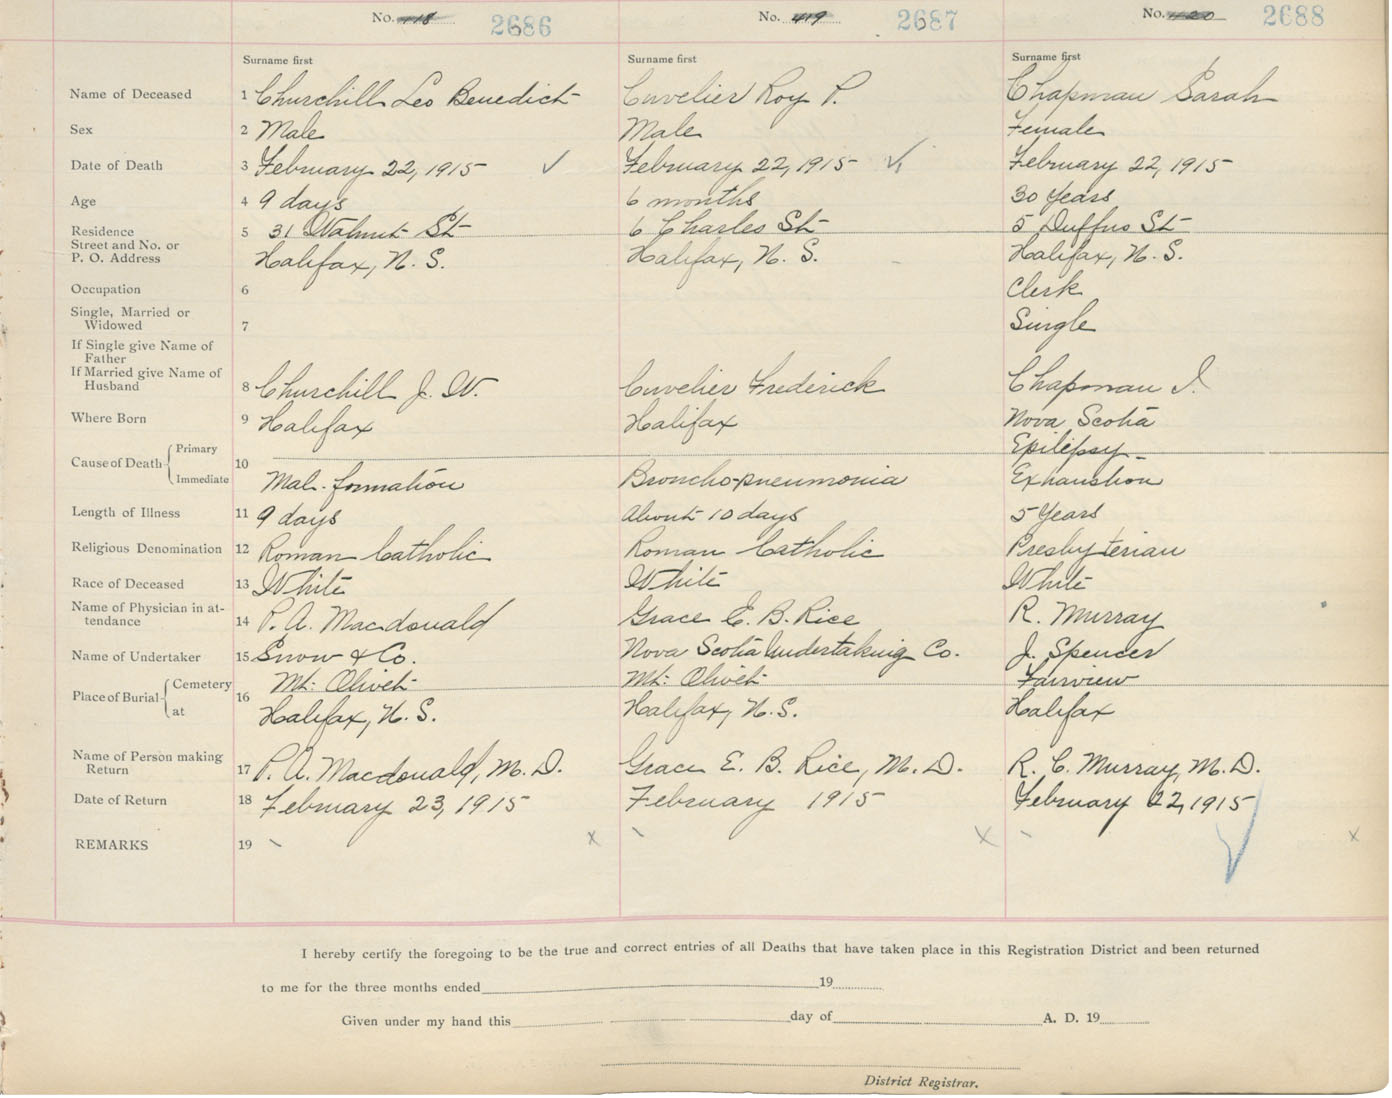 No. 418 2686 No. 419 2687 No. 420 2688
Surname first Surname first Surname first
Name of Deceased 1 Churchill Leo Benedict Cuvelier Roy P. Chapman Sarah
Sex 2 Male Male Female
Date of Death 3 February 22, 1915 ✓ February 22, 1915 ✓ February 22, 1915
Age 4 9 days 6 months 30 Years
Residence 5 31 Walnut St 6 Charles St 5 Duffus St
Street and No. or
P. O. Address Halifax, N. S. Halifax, N. S. Halifax, N. S.
Occupation 6 Clerk
Single, Married or
Widowed 7 Single
If Single give Name of
Father
If Married give Name of
Husband 8 Churchill J. W. Cuvelier Frederick Chapman I.
Where Born 9 Halifax Halifax Nova Scotia
Cause of Death { Primary 10 Epilepsy
Immediate Mal-formation Broncho-pneumonia Exhaustion
Length of Illness 11 9 days About 10 days 5 Years
Religious Denomination 12 Roman Catholic Roman Catholic Presbyterian
Race of Deceased 13 White White White
Name of Physician in at-
tendance 14 P. A. Macdonald Grace E. B. Rice R. Murray
Name of Undertaker 15 Snow & Co. Nova Scotia Undertaking Co. J. Spencer
Place of Burial { Cemetery 16 Mt. Olivet Mt. Olivet Fairview
at Halifax, N. S. Halifax, N. S. Halifax
Name of Person making
Return 17 P. A. Macdonald, M. D. Grace E. B. Rice, M. D. R. C. Murray, M. D.
Date of Return 18 February 23, 1915 February 1915 February 22, 1915
REMARKS 19 x x x
I hereby certify the foregoing to be the true and correct entries of all Deaths that have taken place in this Registration District and been returned
to me for the three months ended 19
Given under my hand this day of A. D. 19
District Registrar.